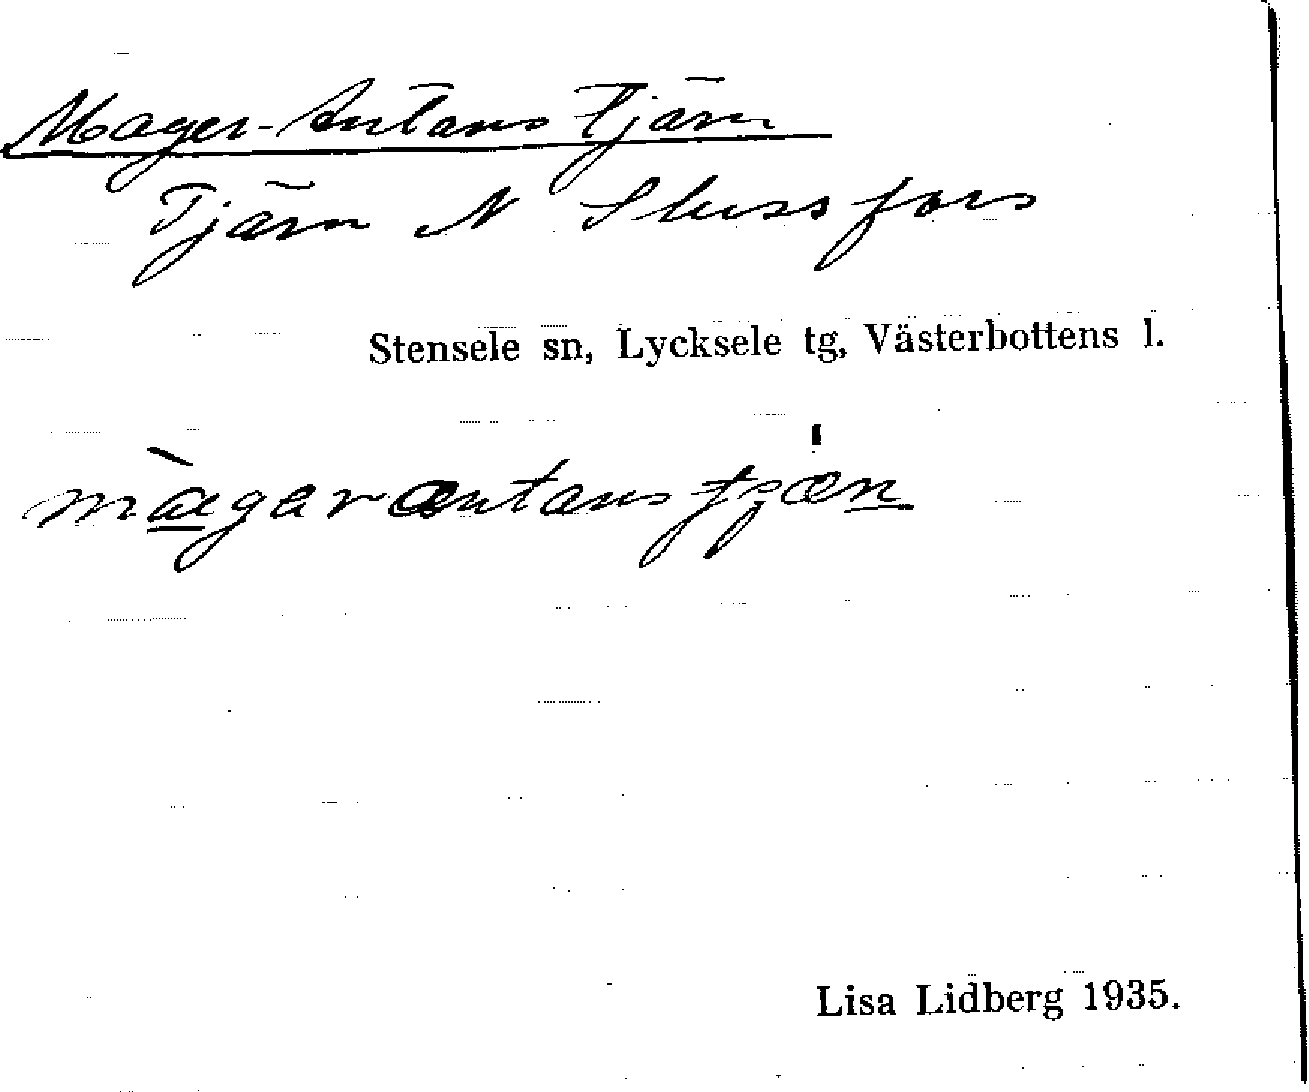 Mager-Antans tjärn
Tjärn N Slussfors
Stensele sn, Lycksele tg, Västerbottens l.
màgarantanstjæn
Lisa Lidberg 1935.